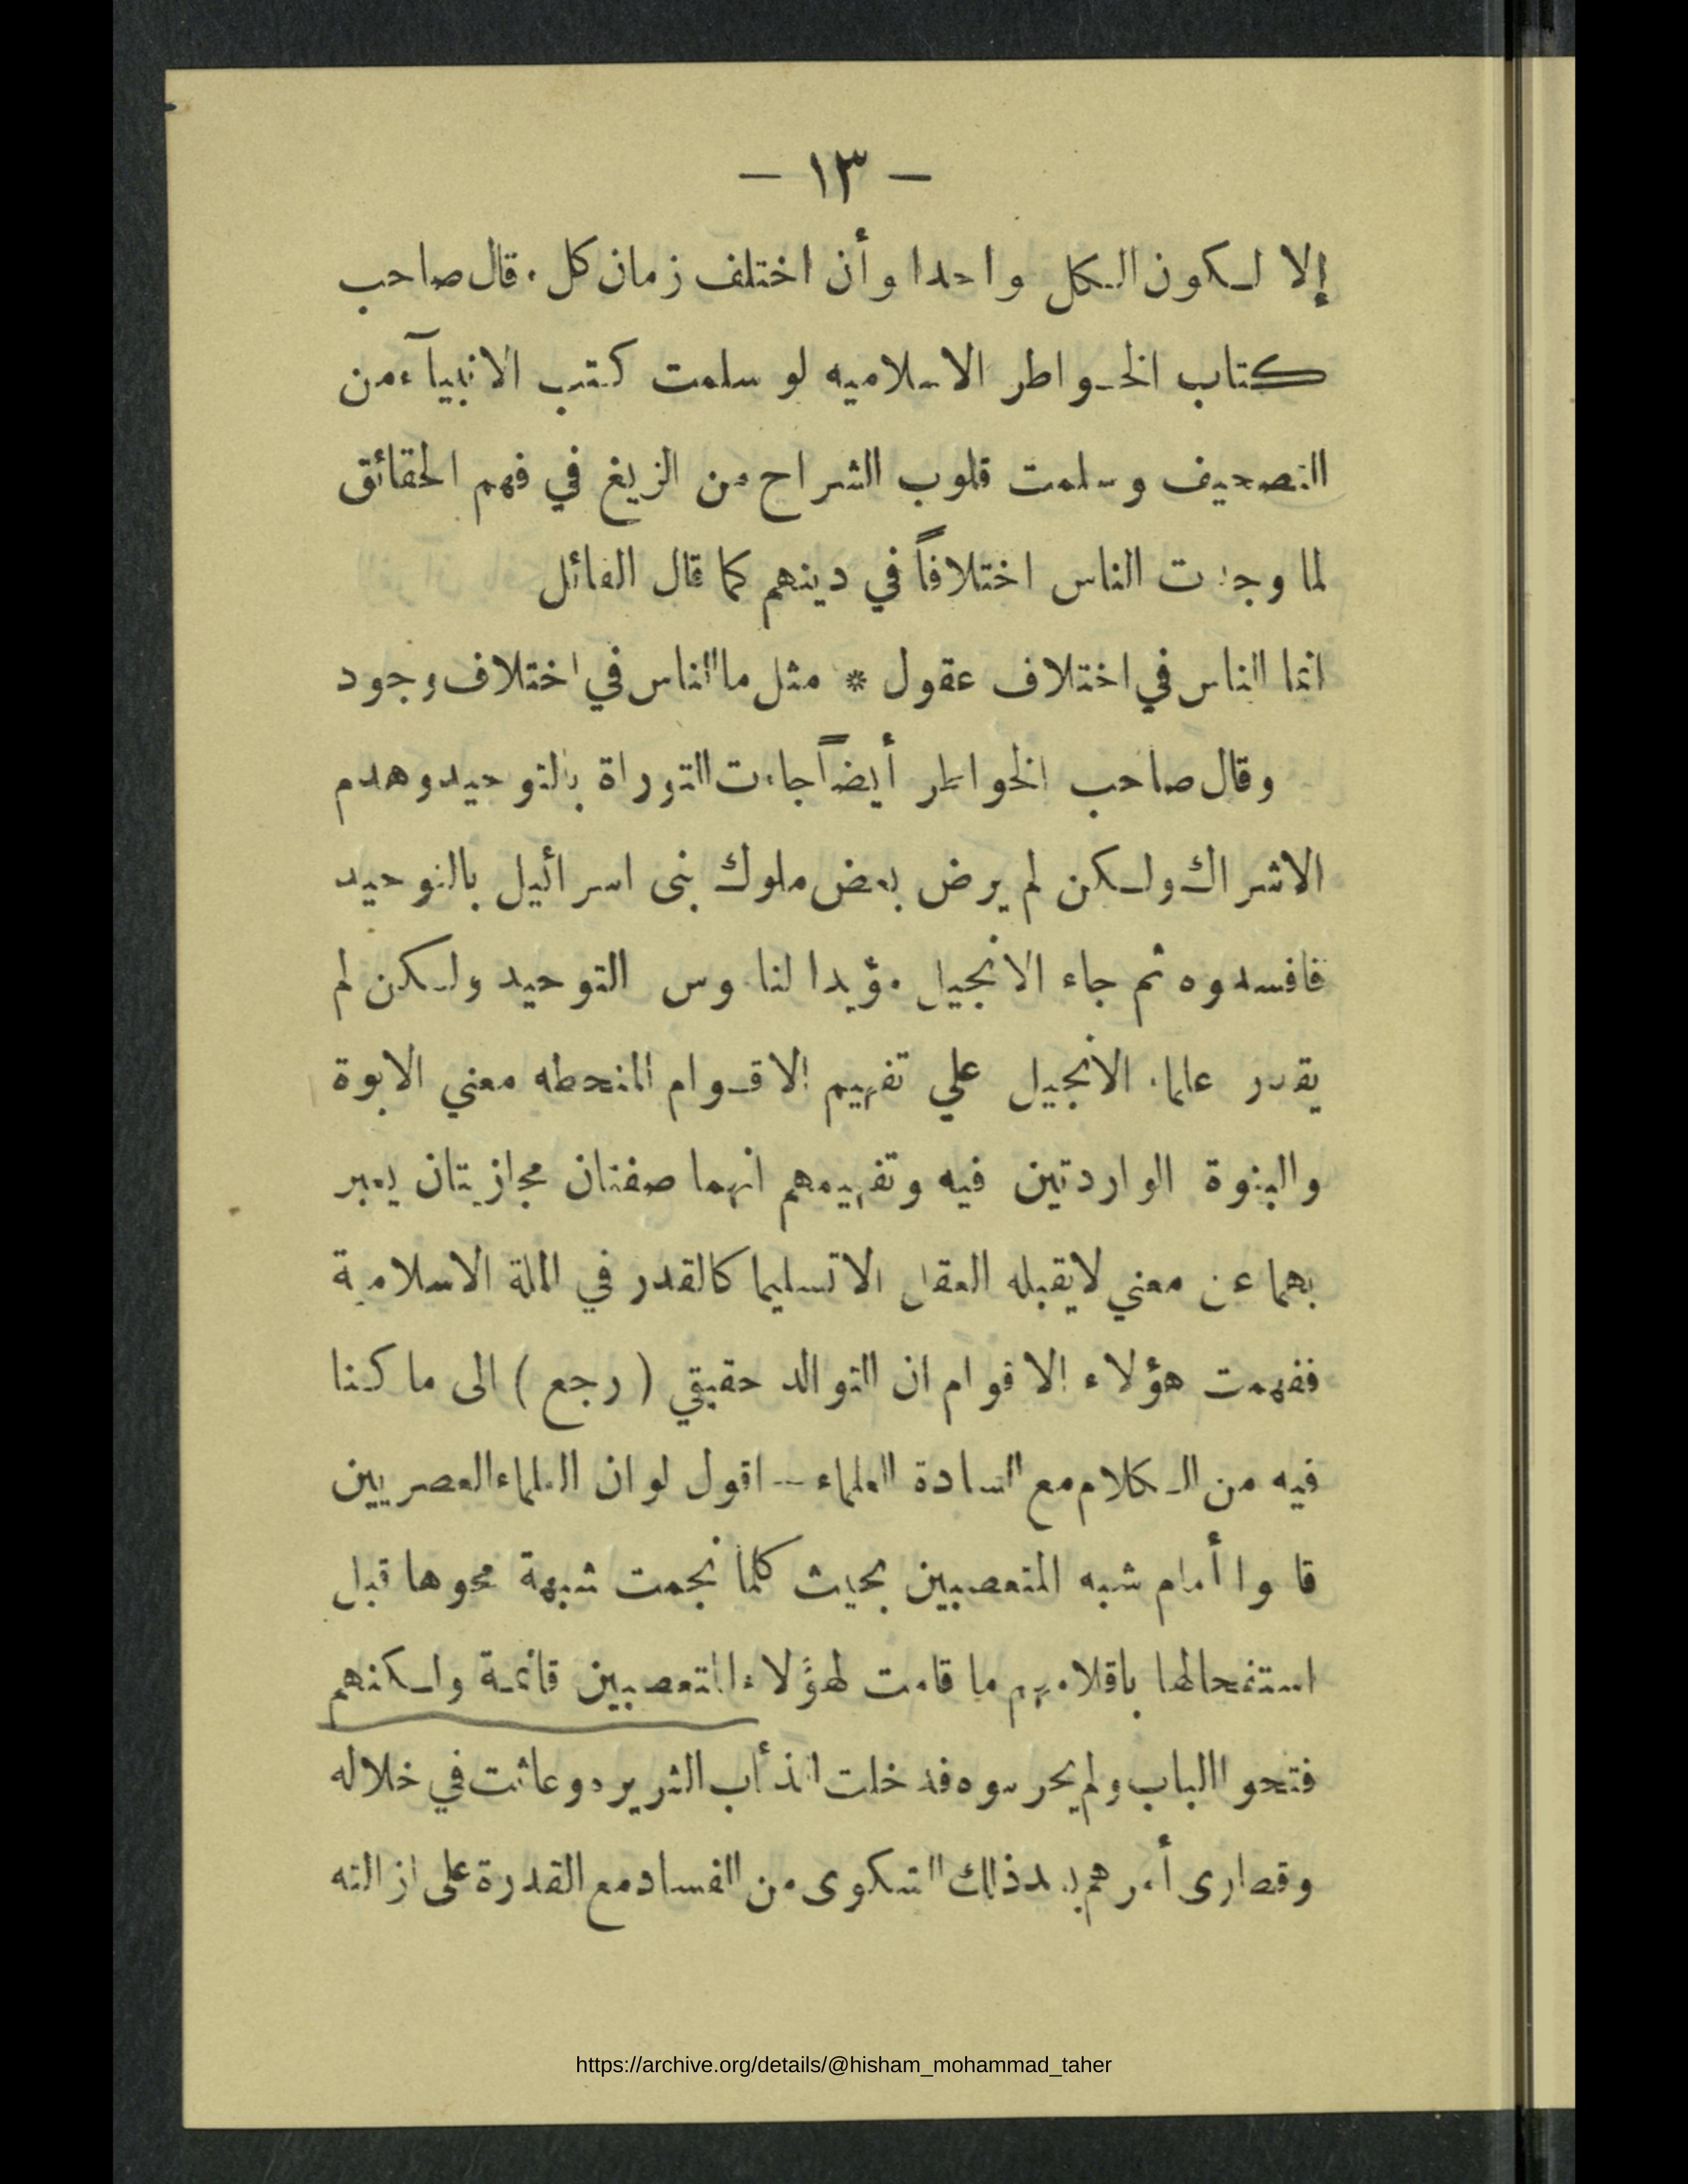 — ١٣ —
إلا لكون الكل واحدا وأن اختلف زمان كل . قال صاحب
كتاب الخواطر الاسلاميه لو سلمت كتب الانبيآء من
التصحيف وسلمت قلوب الشراح من الزيغ في فهم الحقائق
لما وجدت الناس اختلافاً في دينهم كما قال القائل
انما الناس في اختلاف عقول * مثل ما الناس في اختلاف وجود
وقال صاحب الخواطر أيضاً جاءت التوراة بالتوحيد وهدم
الاشراك ولكن لم يرض بعض ملوك بنى اسرائيل بالتوحيد
فافسدوه ثم جاء الانجيل مؤيدا لناموس التوحيد ولكن لم
يقدر علماء الانجيل علي تفهيم الاقوام المنحطه معني الابوة
والبنوة الواردتين فيه وتفهيمهم انهما صفتان مجازيتان يعبر
بهما عن معني لايقبله العقل الا تسليما كالقدر في الملة الاسلامية
ففهمت هؤلاء الاقوام ان التوالد حقيقي ( رجع ) الى ما كنا
فيه من الكلام مع السادة العلماء — اقول لو ان العلماء العصريين
قاموا أمام شبه المتعصبين بحيث كلما نجمت شبهة محوها قبل
استفحالها باقلامهم ما قامت لهؤلاء المتعصبين قائمة ولكنهم
فتحوا الباب ولم يحرسوه فدخلت الذئاب الشريره وعاثت في خلاله
وقصارى أمرهم بعد ذلك الشكوى من الفساد مع القدرة على ازالته
https://archive.org/details/@hisham_mohammad_taher